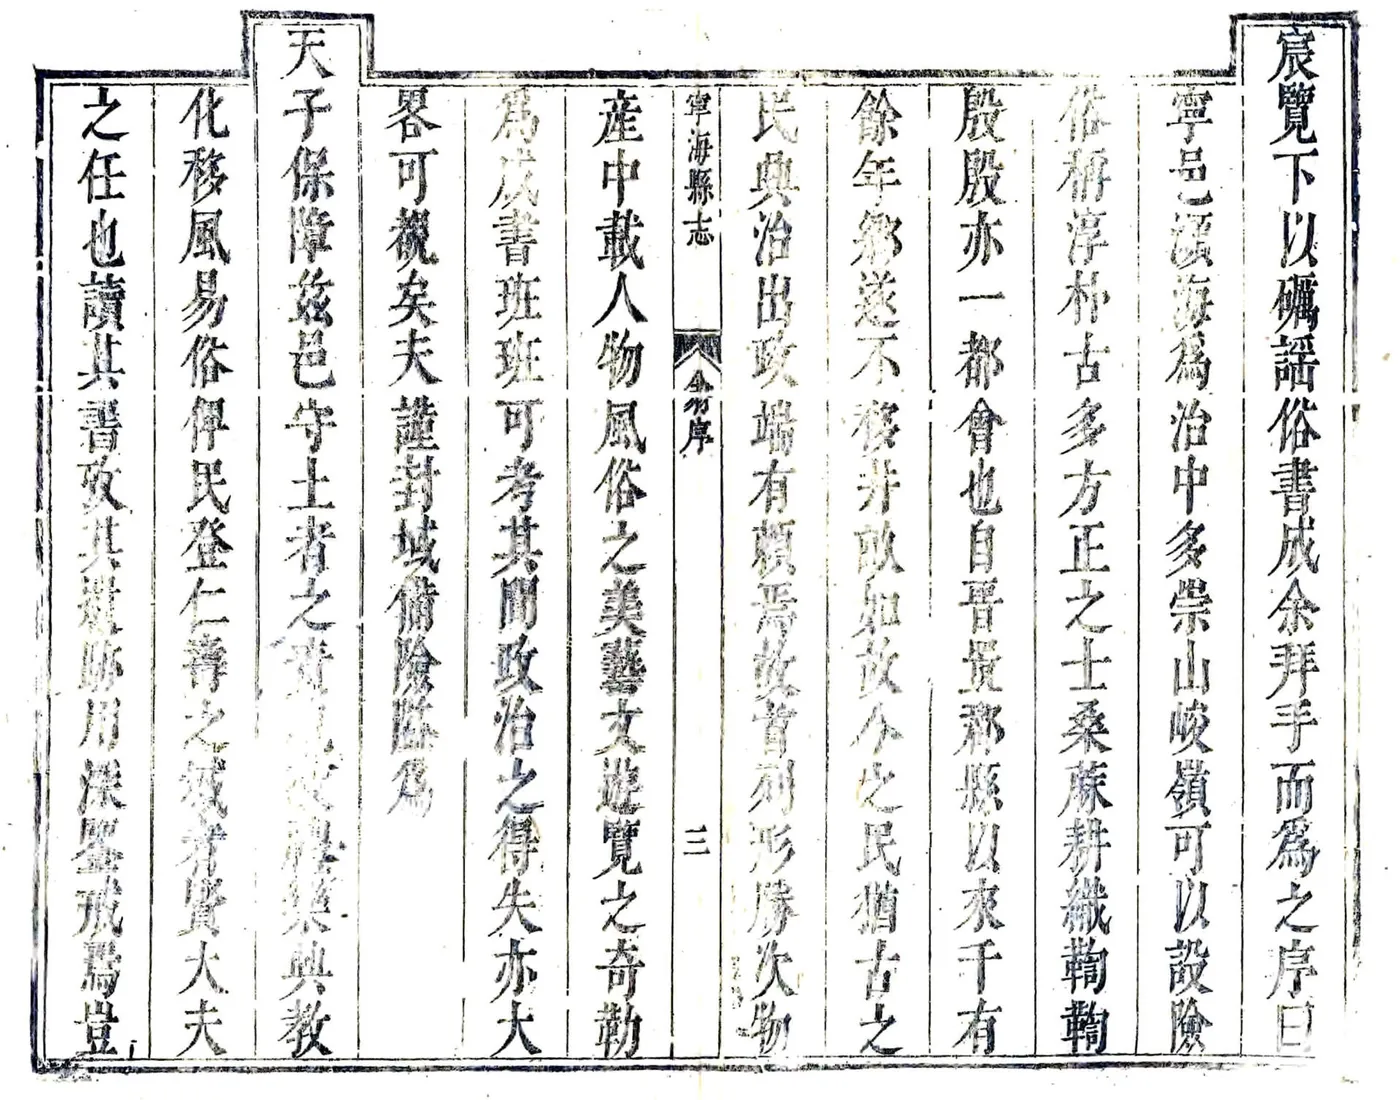 宸覽下以礪謡俗書成余拜手而爲之序曰
寧邑濱海爲治中多崇山峻嶺可以設險
俗稱淳朴古多方正之士桑麻耕織鞫鞫
殷殷亦一都會也自晋置郡縣以來千有
餘年鄉遂不移井畝如故今之民猶古之
民典治出政端有頼焉故首列形勝次物
寧海縣志
序
三
産中載人物風俗之美藝文遊覽之奇勒
爲成書班班可考其間政治之得失亦大
畧可覩矣夫謹封域備險隘爲
天子保障兹邑守土者之責禮樂興教
化移風易俗俾民登仁壽之域者賢大夫
之任也讀其書攷其遺跡用深鑒戒焉豈